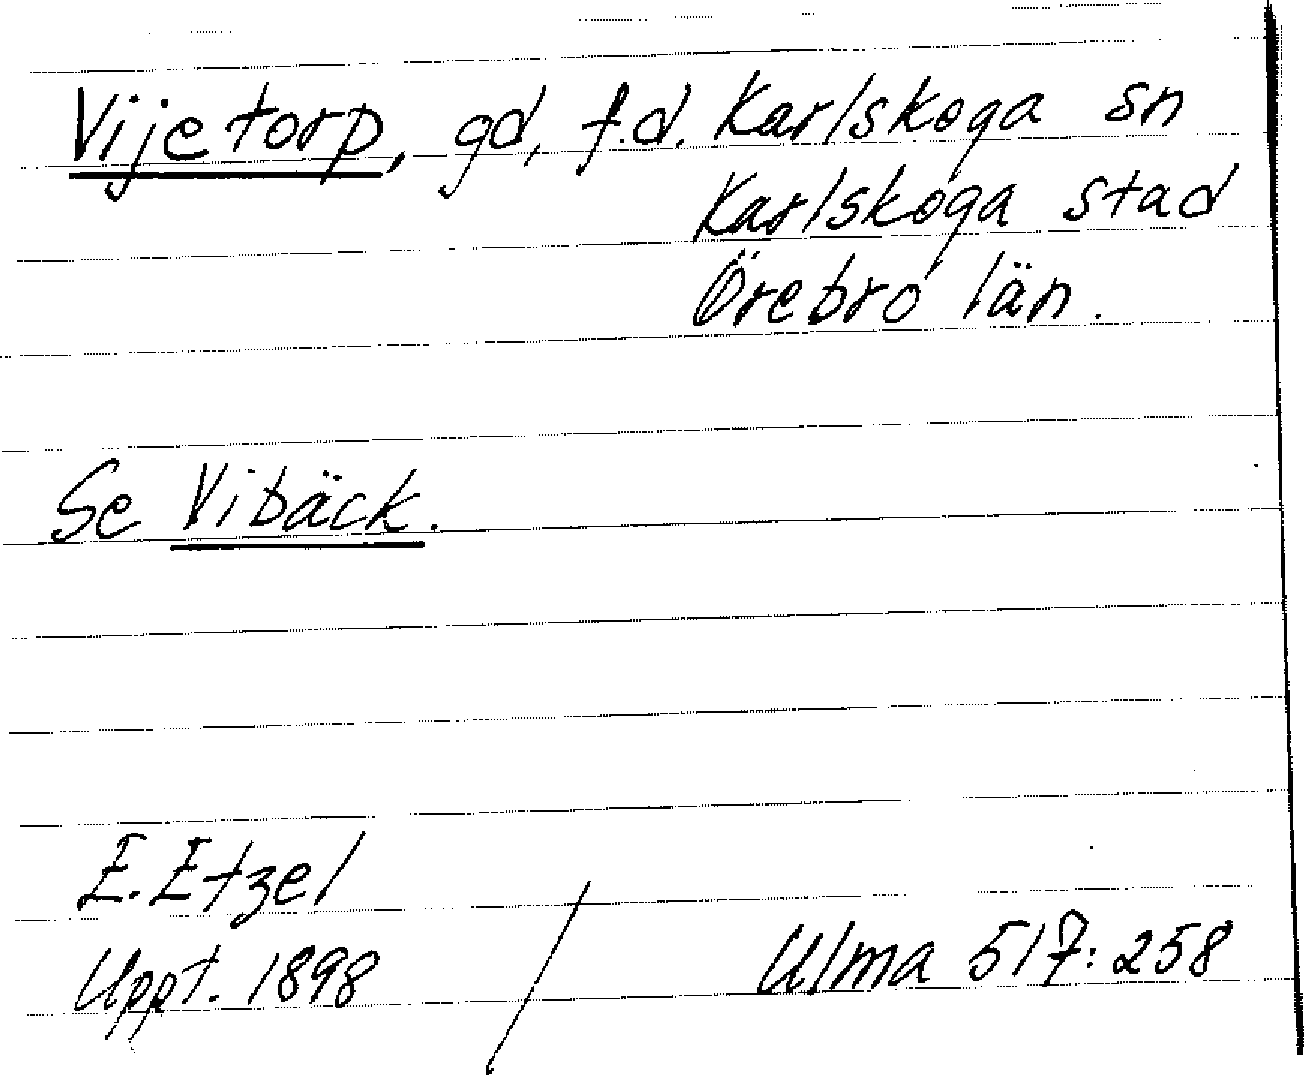 Vijetorp, gd, f.d. Karlskoga sn
Karlskoga stad
Örebro län.
Se Vibäck.
E. Etzel
Uppt. 1898 / Ulma 517:258